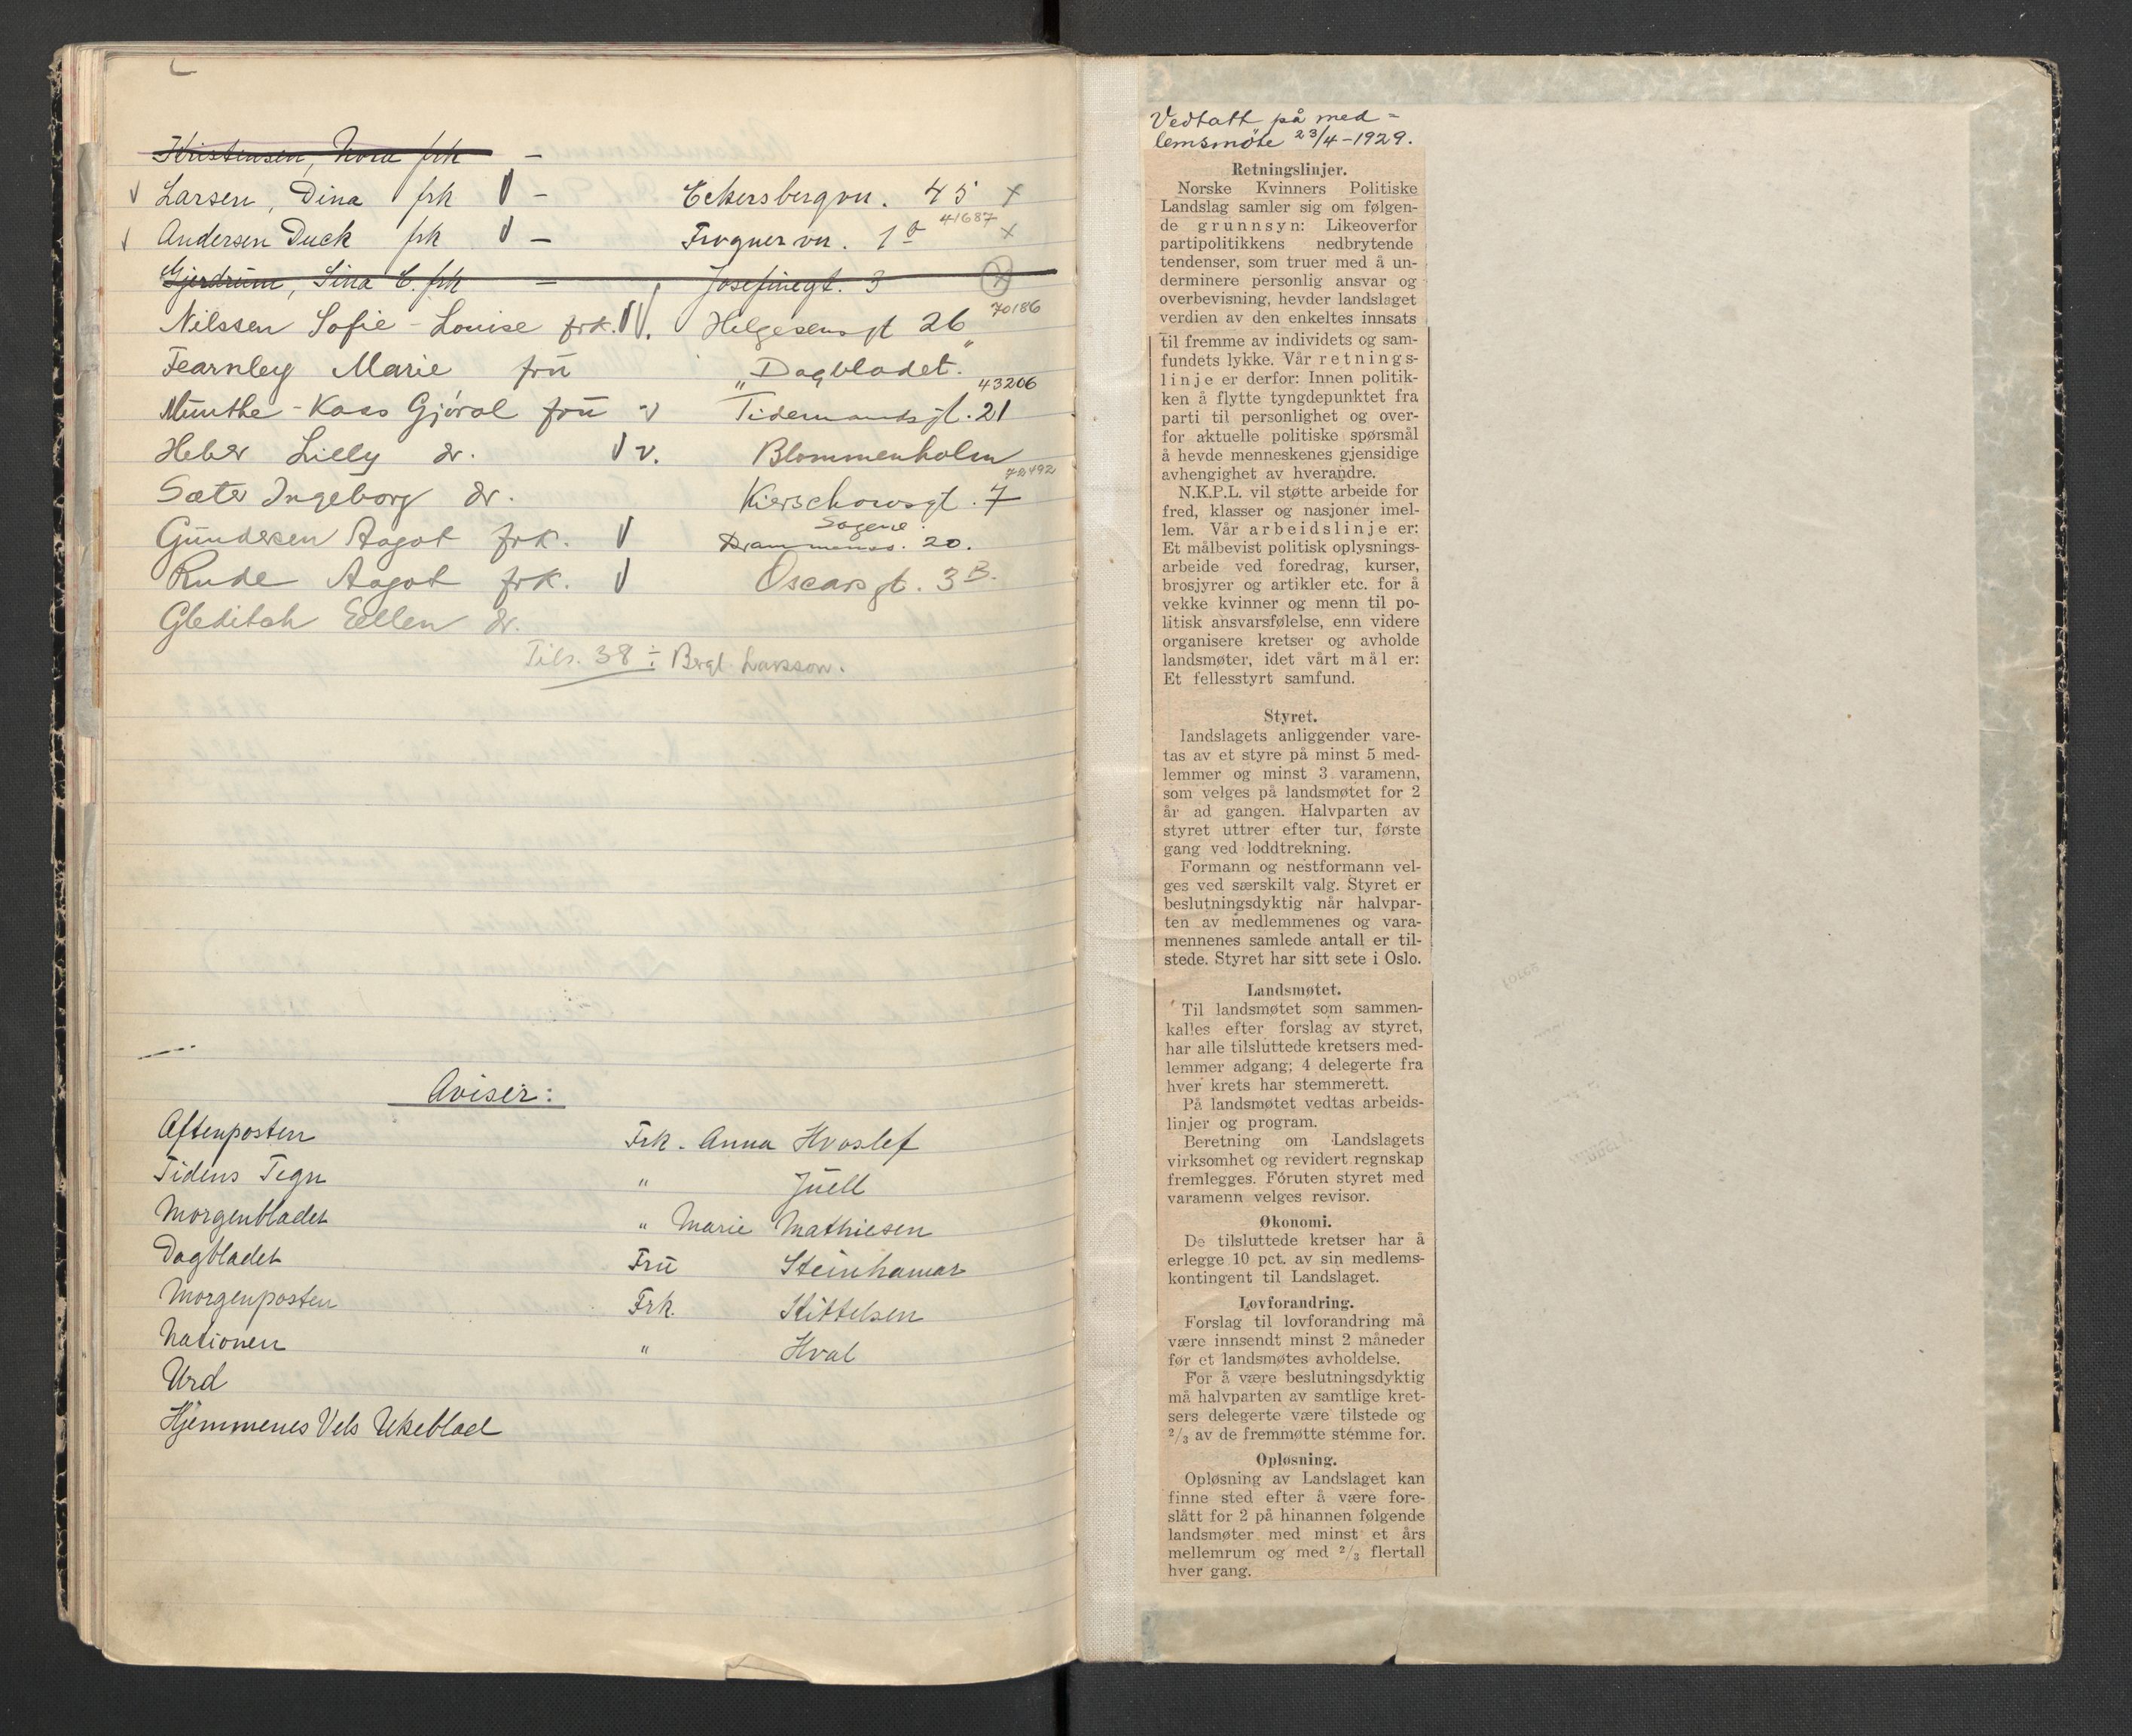 Kristensen, Nora frk –
√ Larsen, Dina frk V – Eckersbergvn. 45 x
√ Andersen Duck frk V – Frognervn. 1 b 41687 x
Gjerdrum, Sina C. frk – Josefinegt. 3 x
Nilssen Sofie-Louise frk. V V. Helgesensgt 26 70186
Fearnley Marie frü „Dagbladet."
Münthe-Kaas Gjöral frü v Tidemandsgt. 21 43206
Heber Lilly dr. V v. Blommenholm
Sæter Ingeborg dr. Kierschowsgt. 7 72492
Sagene.
Gündersen Aagot frk. V Drammensv. 20.
Rude Aagot frk. V Oscarsgt. 3 B.
Gleditsh Eellen dr.
Tils. 38 ÷ Bergl. Larsson.
Aviser:
Aftenposten Frk. Anna Hvoslef
Tidens Tegn " Jüell
Morgenbladet " Marie Mathiesen
Dagbladet Frü Steinhamar
Morgenposten Frk. Kittelsen
Nationen " Hval
Urd
Hjemmenes Vels Ukeblad
Vedtatt på med=
lemsmöte 23/4-1929.
Retningslinjer.
Norske Kvinners Politiske
Landslag samler sig om følgen-
de grunnsyn: Likeoverfor
partipolitikkens nedbrytende
tendenser, som truer med å un-
derminere personlig ansvar og
overbevisning, hevder landslaget
verdien av den enkeltes innsats
til fremme av individets og sam-
fundets lykke. Vår retnings-
linje er derfor: Innen politik-
ken å flytte tyngdepunktet fra
parti til personlighet og over-
for aktuelle politiske spørsmål
å hevde menneskenes gjensidige
avhengighet av hverandre.
N.K.P.L. vil støtte arbeide for
fred, klasser og nasjoner imel-
lem. Vår arbeidslinje er:
Et målbevist politisk oplysnings-
arbeide ved foredrag, kurser,
brosjyrer og artikler etc. for å
vekke kvinner og menn til po-
litisk ansvarsfølelse, enn videre
organisere kretser og avholde
landsmøter, idet vårt mål er:
Et fellesstyrt samfund.
Styret.
Landslagets anliggender vare-
tas av et styre på minst 5 med-
lemmer og minst 3 varamenn,
som velges på landsmøtet for 2
år ad gangen. Halvparten av
styret uttrer efter tur, første
gang ved loddtrekning.
Formann og nestformann vel-
ges ved særskilt valg. Styret er
beslutningsdyktig når halvpar-
ten av medlemmenes og vara-
mennenes samlede antall er til-
stede. Styret har sitt sete i Oslo.
Landsmøtet.
Til landsmøtet som sammen-
kalles efter forslag av styret,
har alle tilsluttede kretsers med-
lemmer adgang; 4 delegerte fra
hver krets har stemmerett.
På landsmøtet vedtas arbeids-
linjer og program.
Beretning om Landslagets
virksomhet og revidert regnskap
fremlegges. Foruten styret med
varamenn velges revisor.
Økonomi.
De tilsluttede kretser har å
erlegge 10 pct. av sin medlems-
kontingent til Landslaget.
Lovforandring.
Forslag til lovforandring må
være innsendt minst 2 måneder
før et landsmøtes avholdelse.
For å være beslutningsdyktig
må halvparten av samtlige kret-
sers delegerte være tilstede og
2/3 av de fremmøtte stemme for.
Opløsning.
Opløsning av Landslaget kan
finne sted efter å være fore-
slått for 2 på hinannen følgende
landsmøter med minst et års
mellemrum og med 2/3 flertall
hver gang.